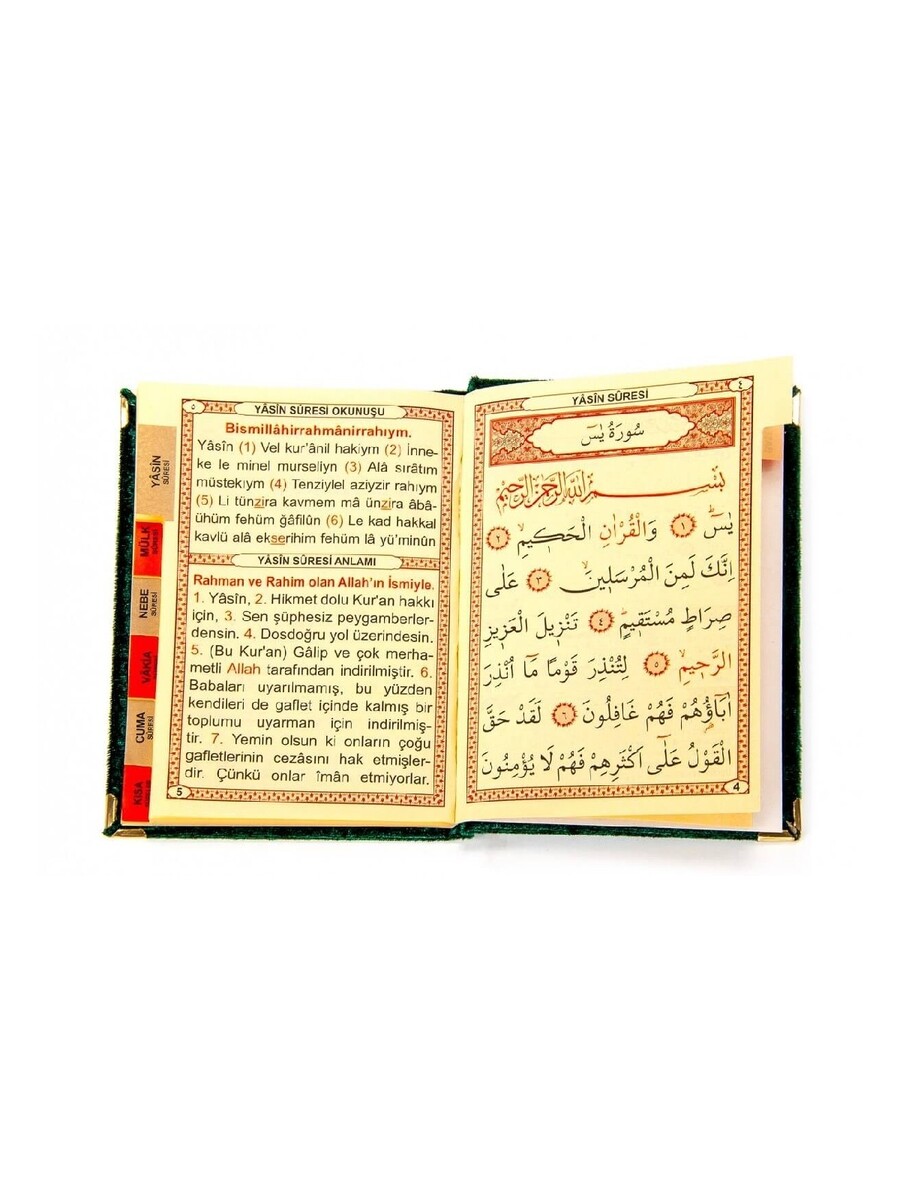 ٤
YÂSİN SÛRESİ
سُورَةُ يٰسٓ
بِسْمِ اللّٰهِ الرَّحْمٰنِ الرَّحِيمِ
يٰسٓ ﴿١﴾ وَالْقُرْاٰنِ الْحَكِيمِ ﴿٢﴾
اِنَّكَ لَمِنَ الْمُرْسَلِينَ ﴿٣﴾ عَلٰى
صِرَاطٍ مُسْتَقِيمٍ ﴿٤﴾ تَنْزِيلَ الْعَزِيزِ
الرَّحِيمِ ﴿٥﴾ لِتُنْذِرَ قَوْمًا مَٓا اُنْذِرَ
اٰبَٓاؤُ۬هُمْ فَهُمْ غَافِلُونَ ﴿٦﴾ لَقَدْ حَقَّ
الْقَوْلُ عَلٰٓى اَكْثَرِهِمْ فَهُمْ لَا يُؤْمِنُونَ
4
٥
YÂSÎN SÛRESİ OKUNUŞU
Bismillâhirrahmânirrahıym.
Yâsîn (1) Vel kur'ânil hakiym (2) İnne-
ke le minel murseliyn (3) Alâ sırâtım
müstekıym (4) Tenziylel aziyzir rahıym
(5) Li tünzira kavmem mâ ünzira âbâ-
ühüm fehüm ğâfilûn (6) Le kad hakkal
kavlü alâ ekserihim fehüm lâ yü'minûn
YÂSÎN SÛRESİ ANLAMI
Rahman ve Rahim olan Allah'ın İsmiyle.
1. Yâsîn, 2. Hikmet dolu Kur'an hakkı
için, 3. Sen şüphesiz peygamberler-
densin. 4. Dosdoğru yol üzerindesin.
5. (Bu Kur'an) Gâlip ve çok merha-
metli Allah tarafından indirilmiştir. 6.
Babaları uyarılmamış, bu yüzden
kendileri de gaflet içinde kalmış bir
toplumu uyarman için indirilmiş-
tir. 7. Yemin olsun ki onların çoğu
gafletlerinin cezasını hak etmişler-
dir. Çünkü onlar îmân etmiyorlar.
5
YÂSÎN
SÛRESİ
MÜLK
SÛRESİ
NEBE
SÛRESİ
VÂKIA
CUMA
SÛRESİ
KISA